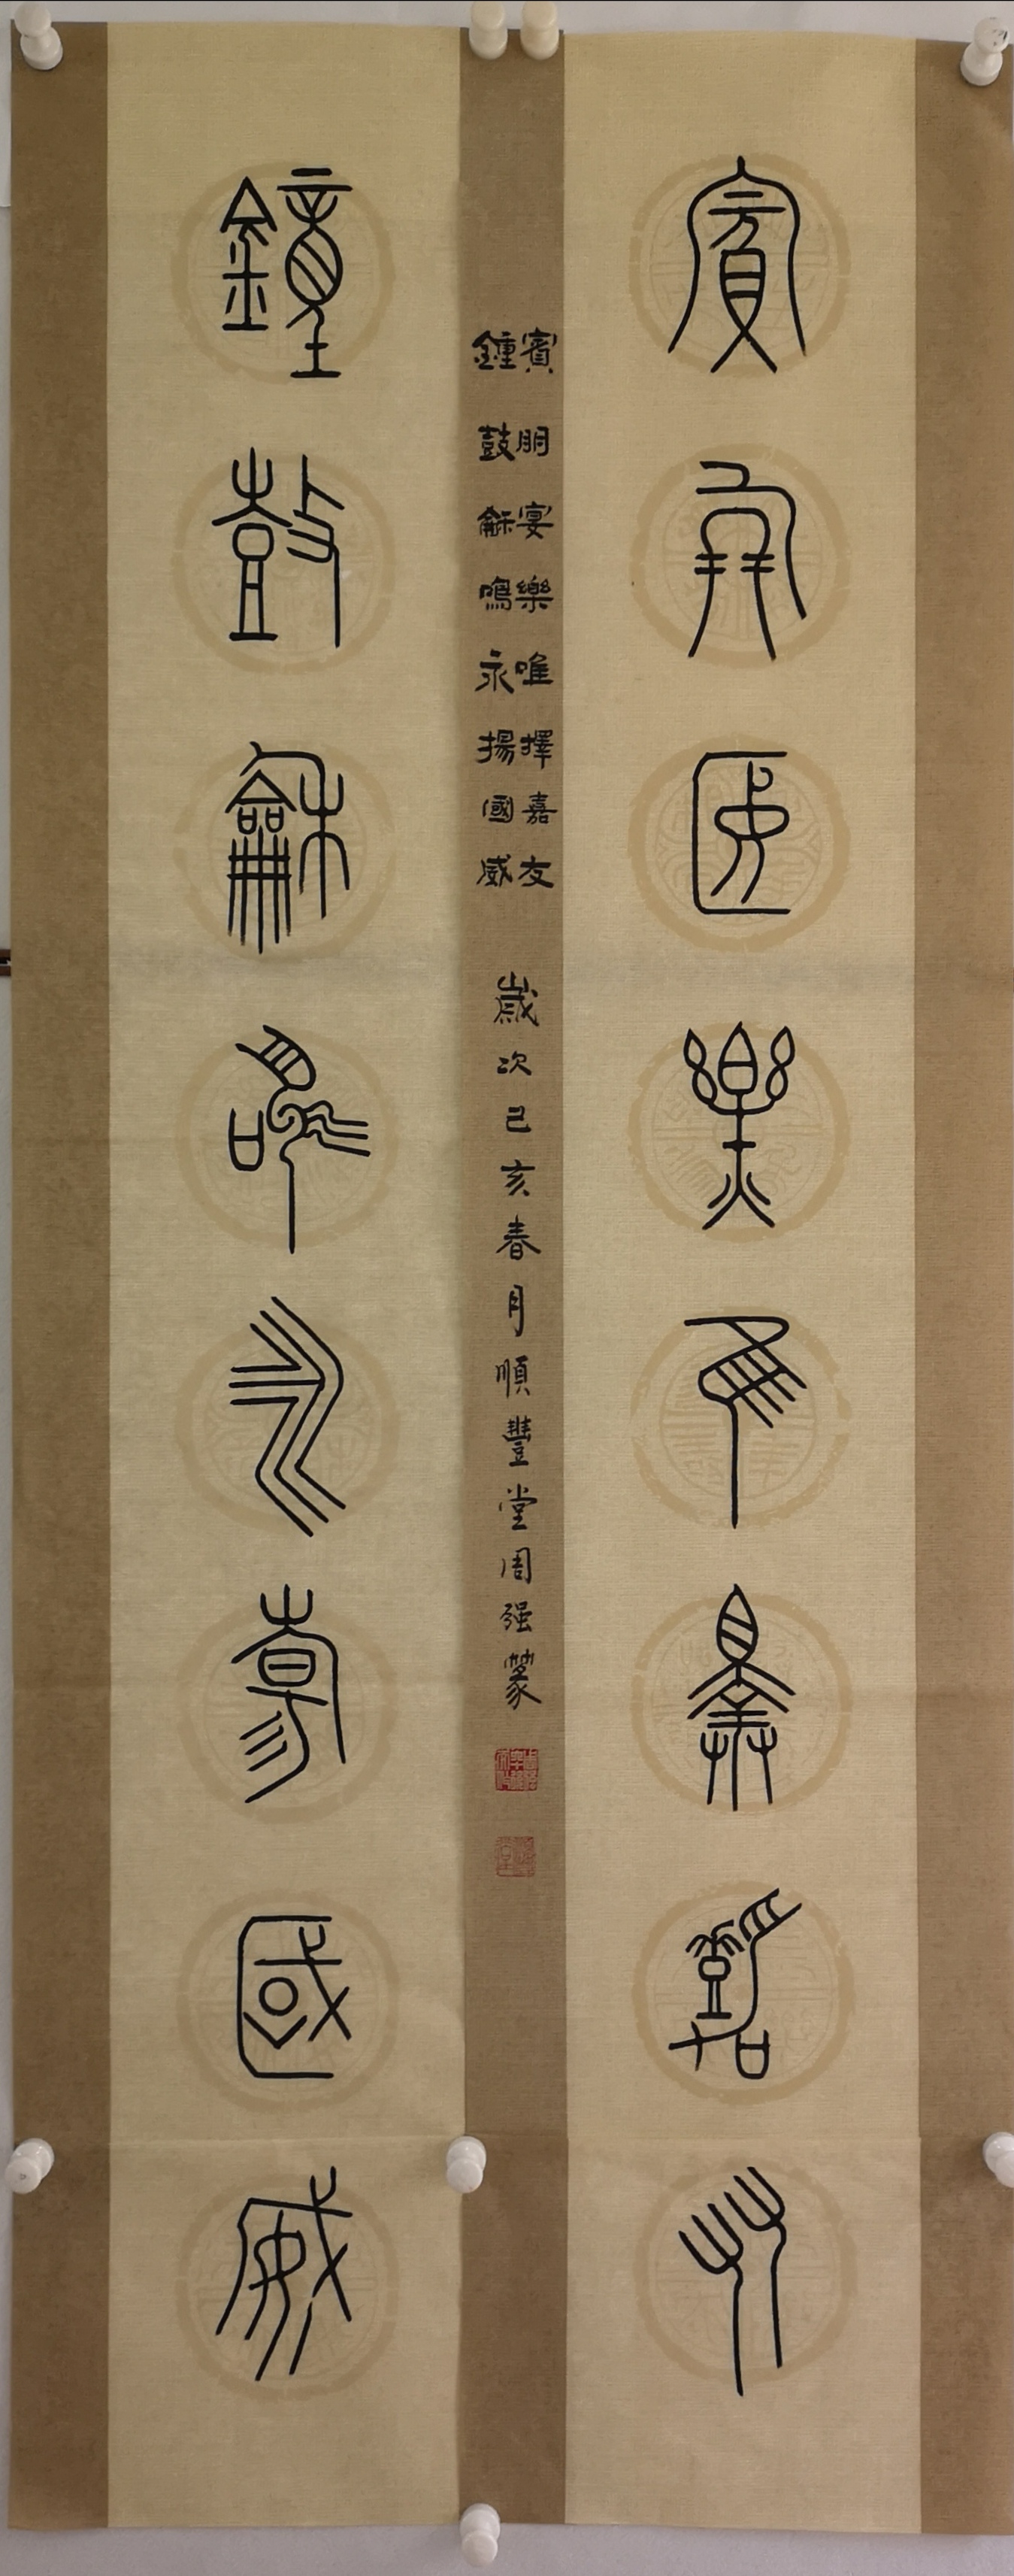 賓朋宴樂唯擇嘉友
鐘鼓龢鳴永揚國威
賓朋宴樂唯擇嘉友
鍾鼓龢鳴永揚國威
歲次己亥春月順豐堂周强篆